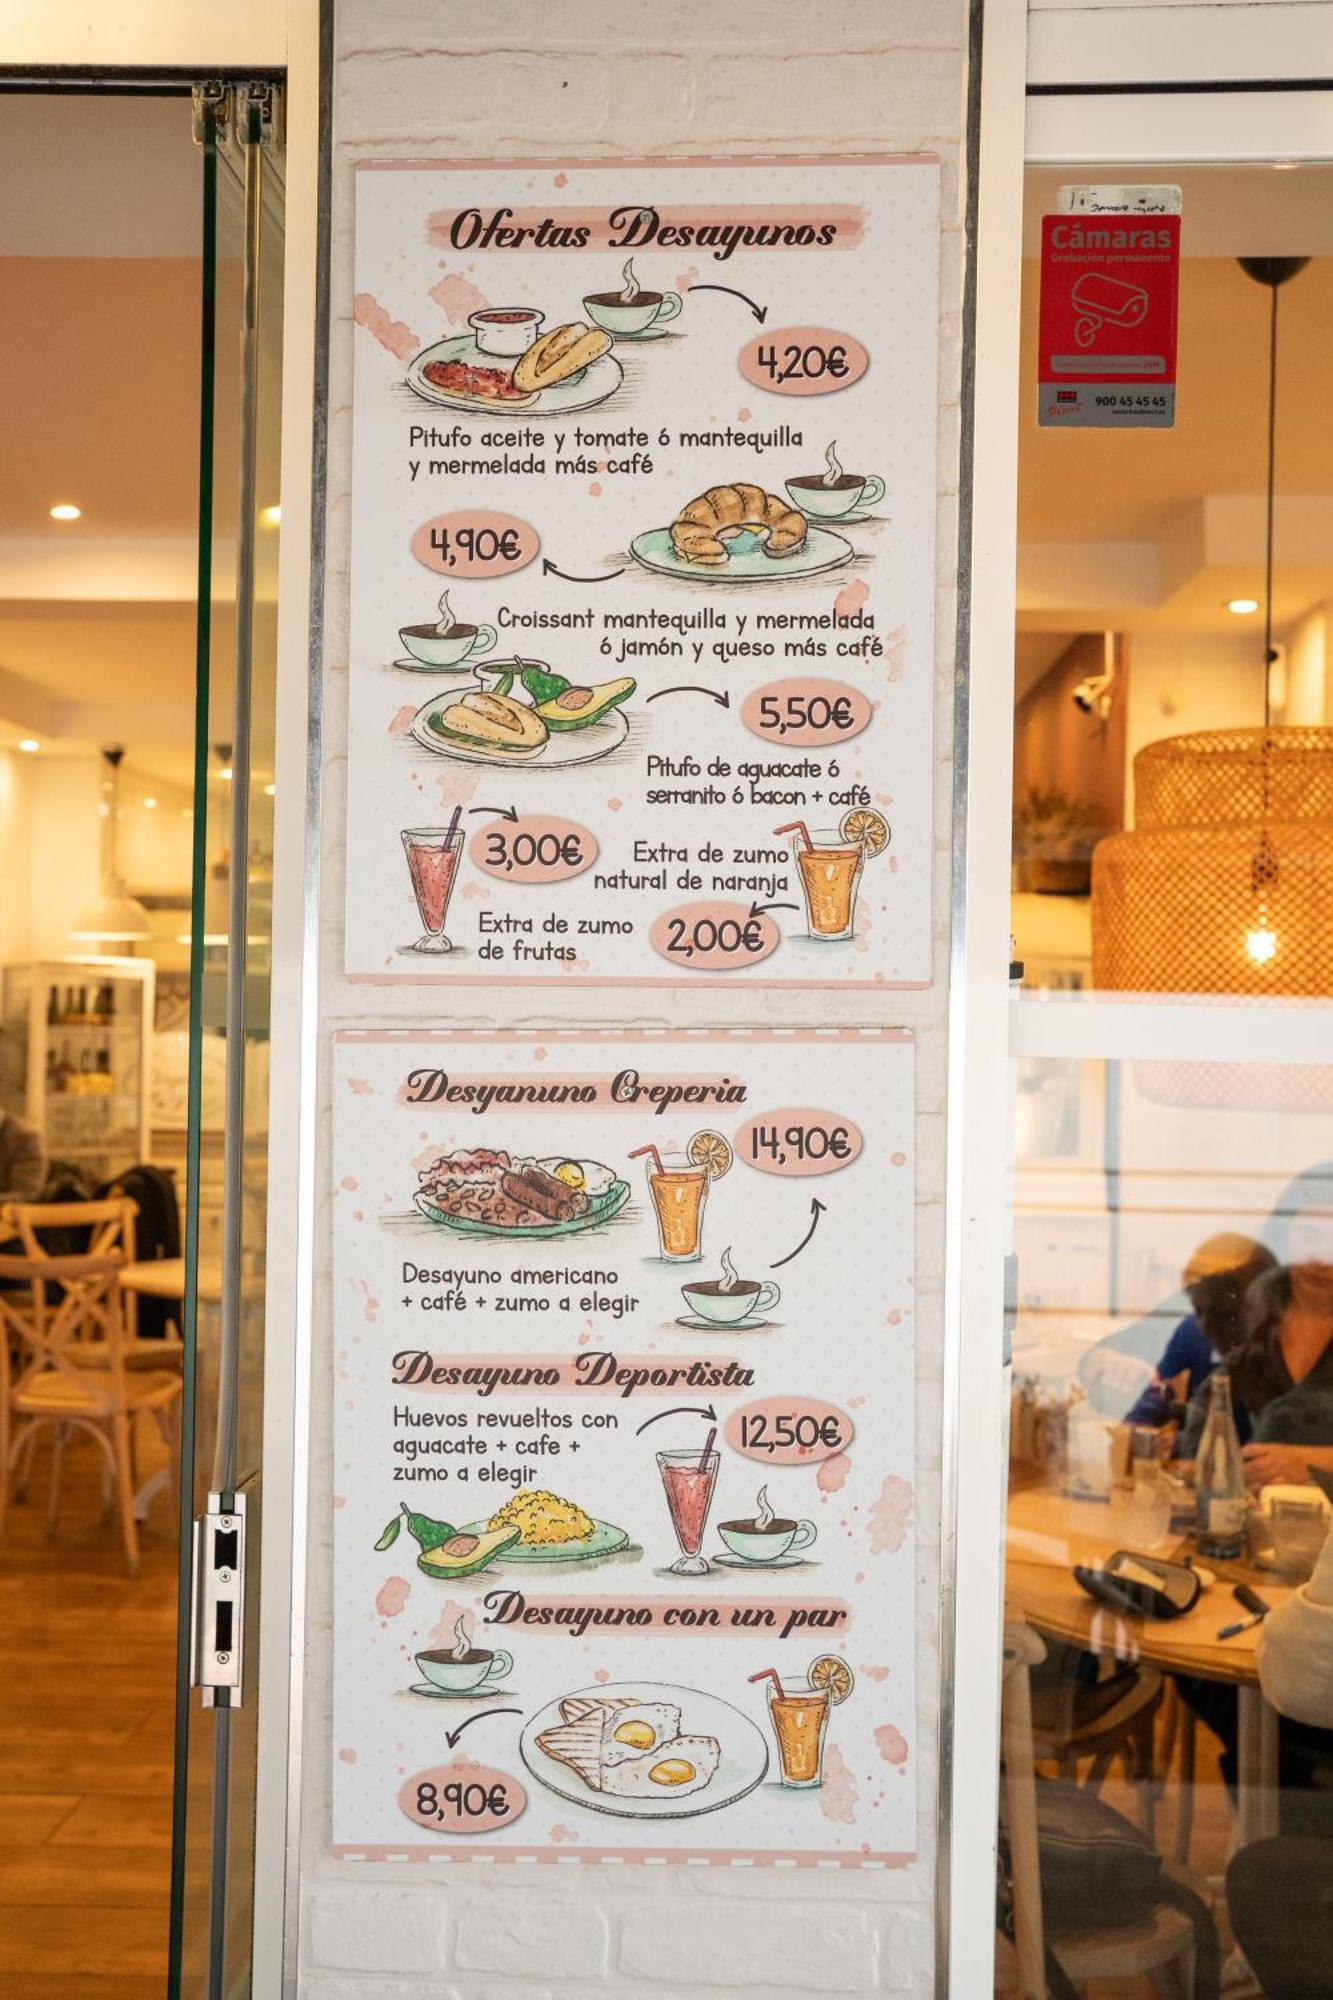 Ofertas Desayunos
4,20€
Pitufo aceite y tomate ó mantequilla
y mermelada más café
4,90€
Croissant mantequilla y mermelada
ó jamón y queso más café
5,50€
Pitufo de aguacate ó
serranito ó bacon + café
3,00€
Extra de zumo
de frutas
Extra de zumo
natural de naranja
2,00€
Desyanuno Creperia
14,90€
Desayuno americano
+ café + zumo a elegir
Desayuno Deportista
Huevos revueltos con
aguacate + cafe +
zumo a elegir
12,50€
Desayuno con un par
8,90€
Cámaras
Grabación permanente
900 45 45 45